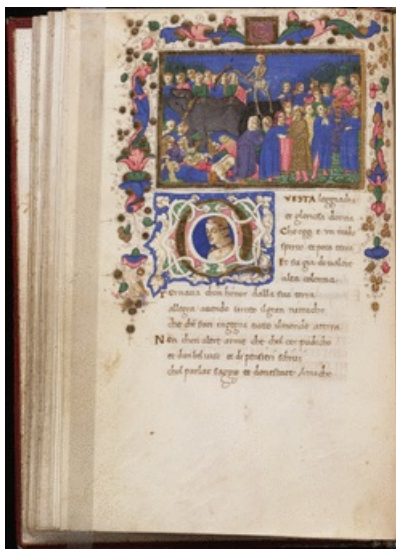 QVESTA leggiadra
et gloriosa donna
Che oggi e
spirto et poca terra
E fu gia di valore
alta colonna
Tornava con honor dalla sua
allegra avendo vinto il gran
che tutto il mondo atterra
Non con altre arme che col cor pudicho
et dun bel viso et de pensieri schivi
dun parlar saggio et donestate amicho